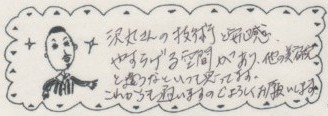 沢丸さんの接客と清潔感、
やすらげる空間があり、他の美容院
と違うなといつも思ってます。
これからも通いますのでよろしくお願いします